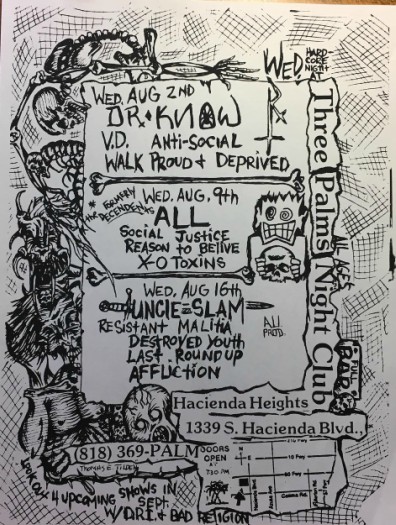 WED. HARD
CORE
NIGHT
AT
Three Palms Night Club
ALL AGES
FULL
BAR
WED. AUG 2ND
DR. KNOW
V.D. ANTi-SOCiAL
WALK PROUD + DEPRIVED
WED. AUG. 9th
* FORMERLY
THE DECENDENTS
ALL
SOCiAL JUSTiCE
REASON to BELIVE
X-O TOXiNS
WED. AUG 16th
UNCLE-SLAM
RESiSTANT MALiTiA
DESTROYED YOUTH
LAST. ROUNDUP
AFFLiCTiON
Hacienda Heights
1339 S. Hacienda Blvd.,
(818) 369-PALM
DOORS
OPEN
AT
7:30 PM
LOOK OUT
4 UPCOMING SHOWS IN
SEPT.
W/D.R.I. + BAD RELIGION